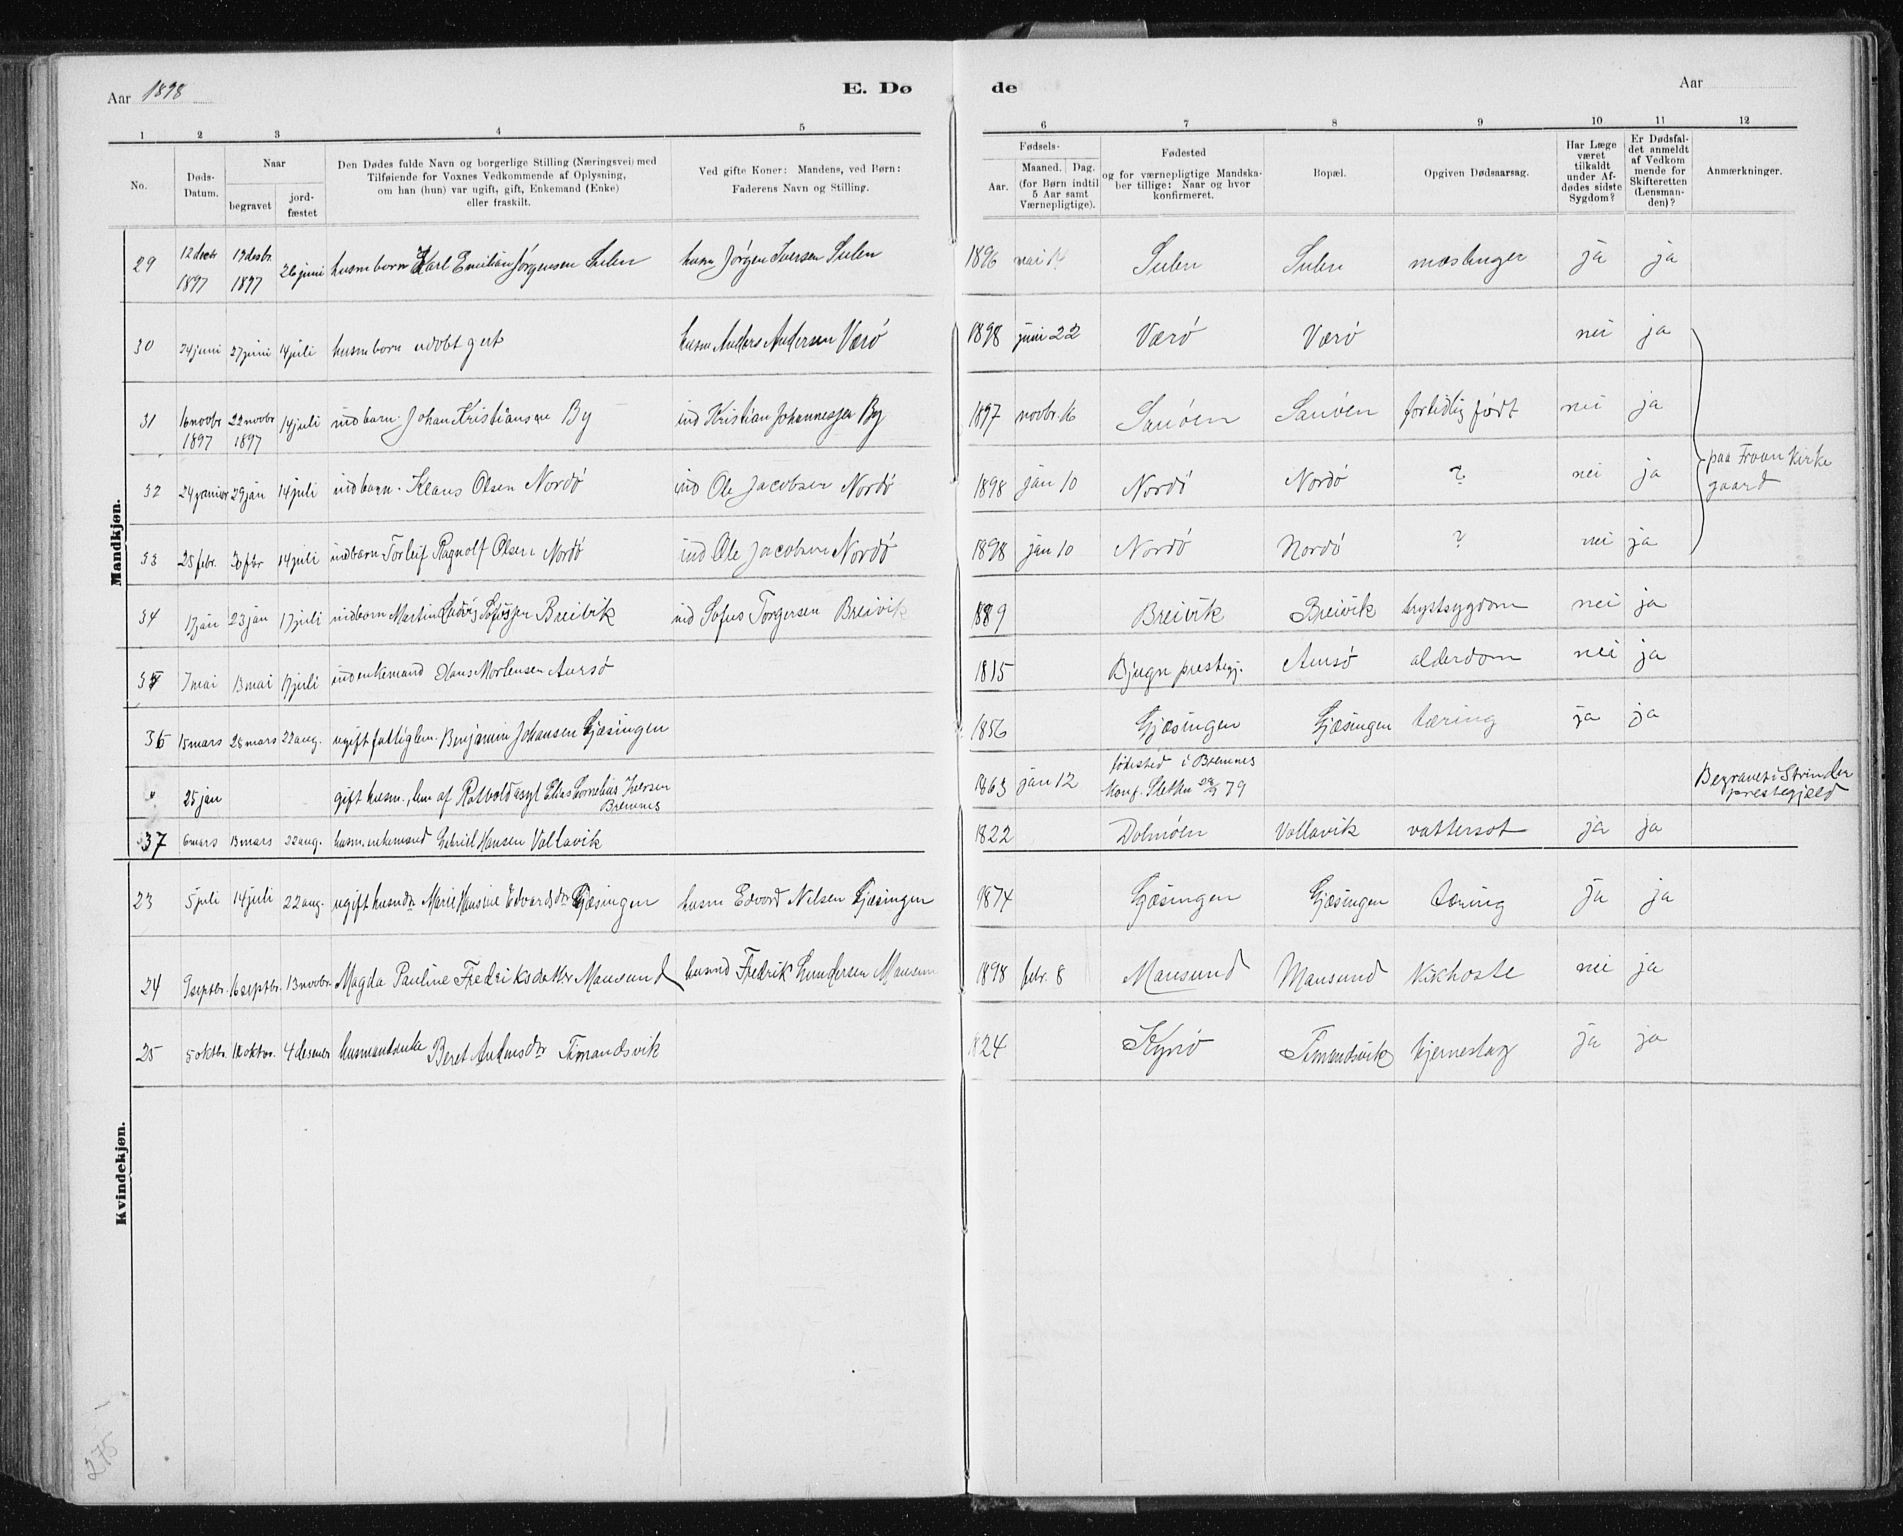 Aar 1898 E. Dø de Aar
1 2 3 4 5 6 7 8 9 10 11 12
No. Døds-Datum. Naar begravet jord-fæstet Den Dødes fulde Navn og borgerlige Stilling (Næringsvei) med Tilføiende for Voxnes Vedkommende af Oplysning, om han (hun) var ugift, gift, Enkemand (Enke) eller fraskilt. Ved gifte Koner: Mandens, ved Børn: Faderens Navn og Stilling. Fødsels- Aar. Maaned. Dag. (for Børn indtil 5 Aar samt Værnepligtige). Fødested og for værnepligtige Mandskaber tillige: Naar og hvor konfirmeret. Bopæl. Opgiven Dødsaarsag. Har Læge været tilkaldt under Afdødes sidste Sygdom? Er Dødsfaldet anmeldt af Vedkommende for Skifteretten (Lensmanden)? Anmærkninger.
Mandkjøn.
29 12 decbr 1897 19 desbr. 1897 26 juni husmbarn Karl Emilian Jørgensen Sulen husm Jørgen Iversen Sulen 1896 mai 14 Sulen Sulen mæslinger ja ja
30 24 juni 27 juni 14 juli husmbarn udøbt gut husm Anders Andersen Værø 1898 juni 22 Værø Værø nei ja
31 16 novbr 1897 22 novbr 1897 14 juli indbarn. Johan Kristiansen By ind Kristian Johannessen By 1897 novbr. 16 Sauøen Sauøen fortidlig født nei ja
32 24 januar 29 jan 14 juli indbarn. Klaus Olsen Nordø ind Ole Jacobsen Nordø 1898 jan 10 Nordø Nordø ? nei ja paa Froan Kirke gaard
33 25 febr. 14 juli indbarn Torleif Ragnolf Olsen Nordø ind Ole Jacobsen Nordø 1898 jan 10 Nordø Nordø ? nei ja
34 17 jan 23 jan 17 juli indbarn Martin Ludvig Sofussen Breivik ind Sofus Torgersen Breivik 1889 Breivik Breivik brystsygdom nei ja
35 7 mai 13 mai 17 juli ind enkemand Hans Mortensen Aursø 1815 Bjugn prestegj. Aursø alderdom nei ja
36 15 mars 28 mars 22 aug. ugift fattiglem. Benjamin Johansen Gjæsingen 1856 Gjæsingen Gjæsingen tæring ja ja
" 25 jan gift husm., lem af Rotvold asyl Elias Cornelius Iversen Bremnes 1863 jan 12 fødested i Bremnes konf. Sletten 79 Begravet i Strinden prestegjæld
37 6 mars 13 mars 22 aug. husm. enkemand Gabriel Hansen Vallavik 1822 Dolmøen Vallavik vattersot ja ja
Kvindekjøn.
23 5 juli 14 juli 22 aug. ugift husmdr Marie Hansine Edvardsdr Gjæsingen husm Edvard Nilsen Gjæsingen 1874 Gjæsingen Gjæsingen tæring ja ja
24 9 septbr. 16 septbr. 13 novbr. Magda Pauline Fredriksdatter Mausund husmd Fredrik Gundersen Mausun 1898 febr. 8 Mausund Mausund Kikhoste nei ja
25 5 oktbr. 10 oktbr. 4 desember husmandsenke Beret Andersdr Timandsvik 1824 Kyrø Timandsvik hjerneslag ja ja
275